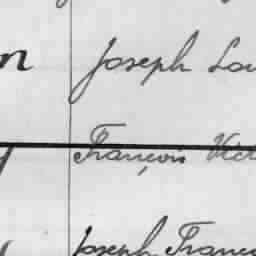 n Joseph Lou
y François Vict
Joseph Franço